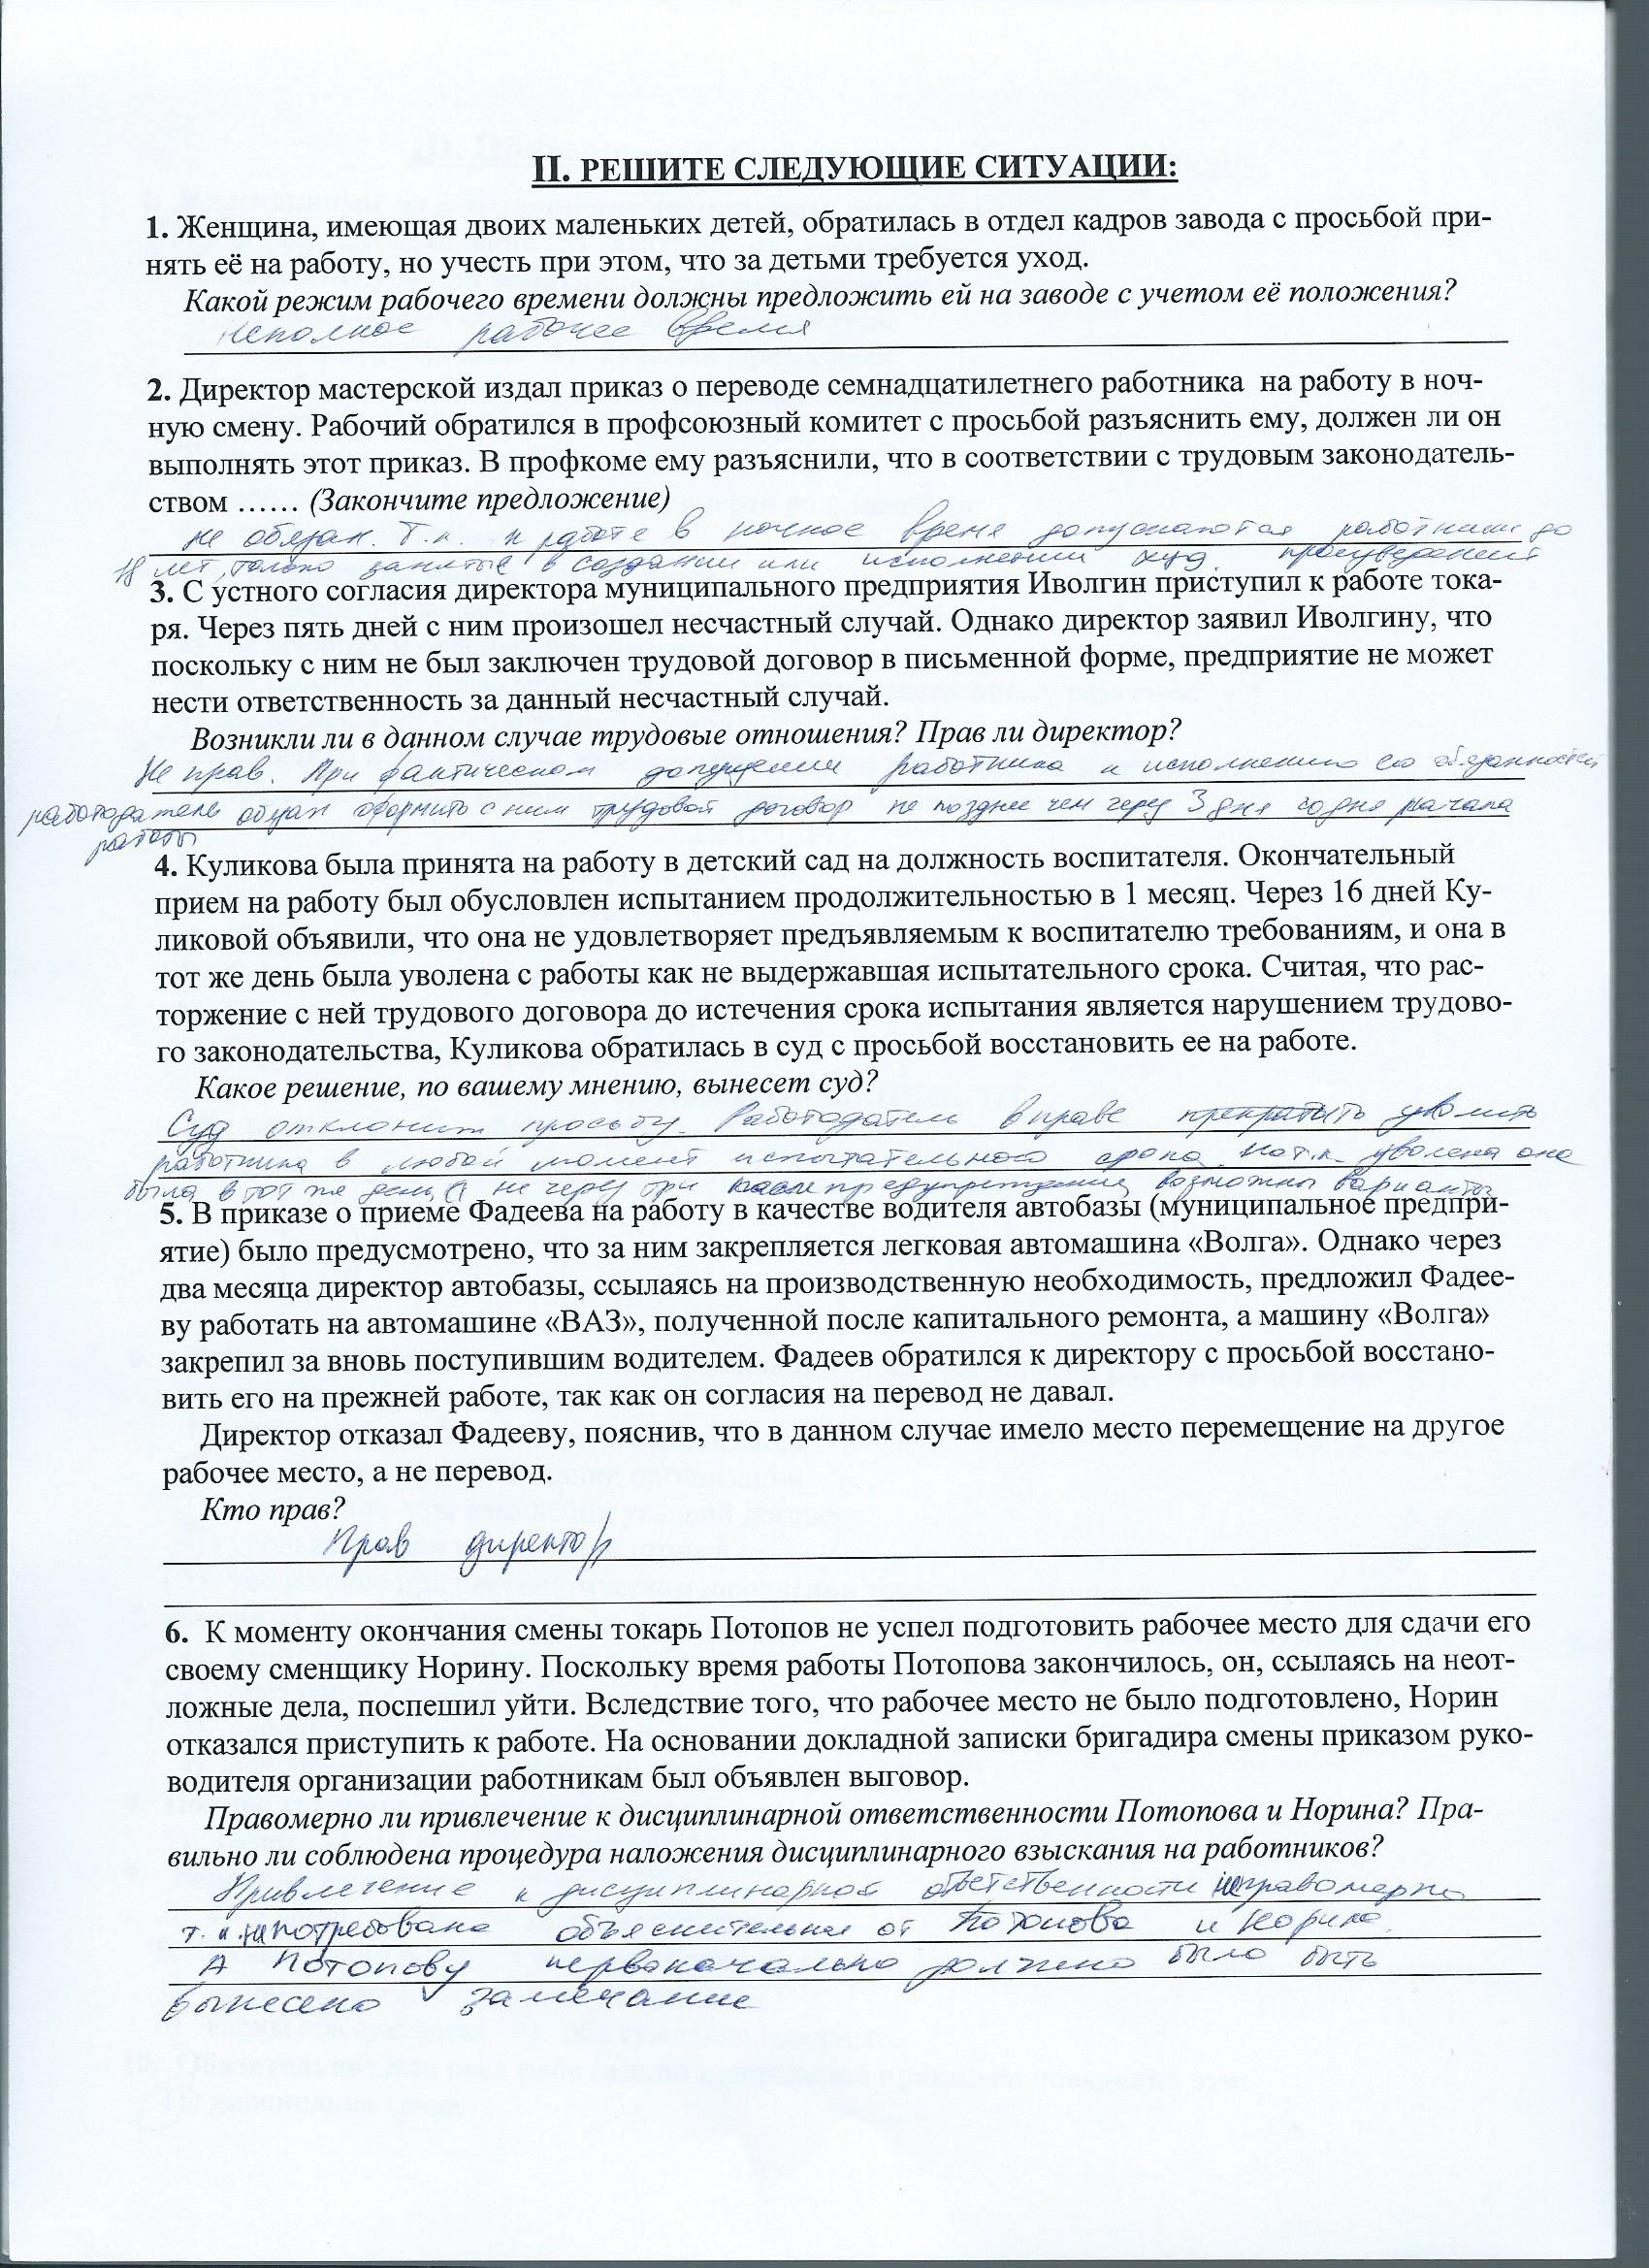 II. РЕШИТЕ СЛЕДУЮЩИЕ СИТУАЦИИ:
1. Женщина, имеющая двоих маленьких детей, обратилась в отдел кадров завода с просьбой при-
нять её на работу, но учесть при этом, что за детьми требуется уход.
Какой режим рабочего времени должны предложить ей на заводе с учетом её положения?
неполное рабочее время
2. Директор мастерской издал приказ о переводе семнадцатилетнего работника на работу в ноч-
ную смену. Рабочий обратился в профсоюзный комитет с просьбой разъяснить ему, должен ли он
выполнять этот приказ. В профкоме ему разъяснили, что в соответствии с трудовым законодатель-
ством …… (Закончите предложение)
не обязан. Т.к. к работе в ночное время допускаются работники до
18 лет, только занятые в создании или исполнении худ. произведений
3. С устного согласия директора муниципального предприятия Иволгин приступил к работе тока-
ря. Через пять дней с ним произошел несчастный случай. Однако директор заявил Иволгину, что
поскольку с ним не был заключен трудовой договор в письменной форме, предприятие не может
нести ответственность за данный несчастный случай.
Возникли ли в данном случае трудовые отношения? Прав ли директор?
Не прав. При фактическом допущении работника к исполнению его обязанностей
работодатель обязан оформить с ним трудовой договор не позднее чем через 3 дня со дня начала
работы
4. Куликова была принята на работу в детский сад на должность воспитателя. Окончательный
прием на работу был обусловлен испытанием продолжительностью в 1 месяц. Через 16 дней Ку-
ликовой объявили, что она не удовлетворяет предъявляемым к воспитателю требованиям, и она в
тот же день была уволена с работы как не выдержавшая испытательного срока. Считая, что рас-
торжение с ней трудового договора до истечения срока испытания является нарушением трудово-
го законодательства, Куликова обратилась в суд с просьбой восстановить ее на работе.
Какое решение, по вашему мнению, вынесет суд?
Суд отклонит просьбу. Работодатель вправе уволить
работника в любой момент испытательного срока. Но т.к. уволена она
была в тот же день, а не через три после предупреждения, возможны варианты
5. В приказе о приеме Фадеева на работу в качестве водителя автобазы (муниципальное предпри-
ятие) было предусмотрено, что за ним закрепляется легковая автомашина «Волга». Однако через
два месяца директор автобазы, ссылаясь на производственную необходимость, предложил Фадее-
ву работать на автомашине «ВАЗ», полученной после капитального ремонта, а машину «Волга»
закрепил за вновь поступившим водителем. Фадеев обратился к директору с просьбой восстано-
вить его на прежней работе, так как он согласия на перевод не давал.
Директор отказал Фадееву, пояснив, что в данном случае имело место перемещение на другое
рабочее место, а не перевод.
Кто прав?
Прав директор
6. К моменту окончания смены токарь Потопов не успел подготовить рабочее место для сдачи его
своему сменщику Норину. Поскольку время работы Потопова закончилось, он, ссылаясь на неот-
ложные дела, поспешил уйти. Вследствие того, что рабочее место не было подготовлено, Норин
отказался приступить к работе. На основании докладной записки бригадира смены приказом руко-
водителя организации работникам был объявлен выговор.
Правомерно ли привлечение к дисциплинарной ответственности Потопова и Норина? Пра-
вильно ли соблюдена процедура наложения дисциплинарного взыскания на работников?
Привлечение к дисциплинарной ответственности неправомерно
т.к. не потребована объяснительная от Потопова и Норина.
А Потопову первоначально должно было быть
вынесено замечание